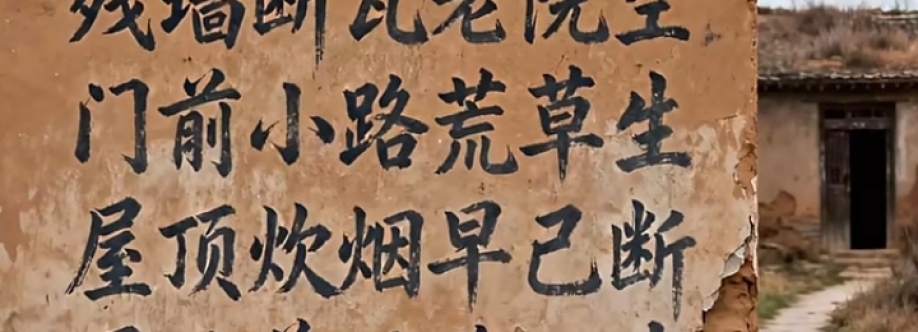 残墙断瓦老院空
门前小路荒草生
屋顶炊烟早已断